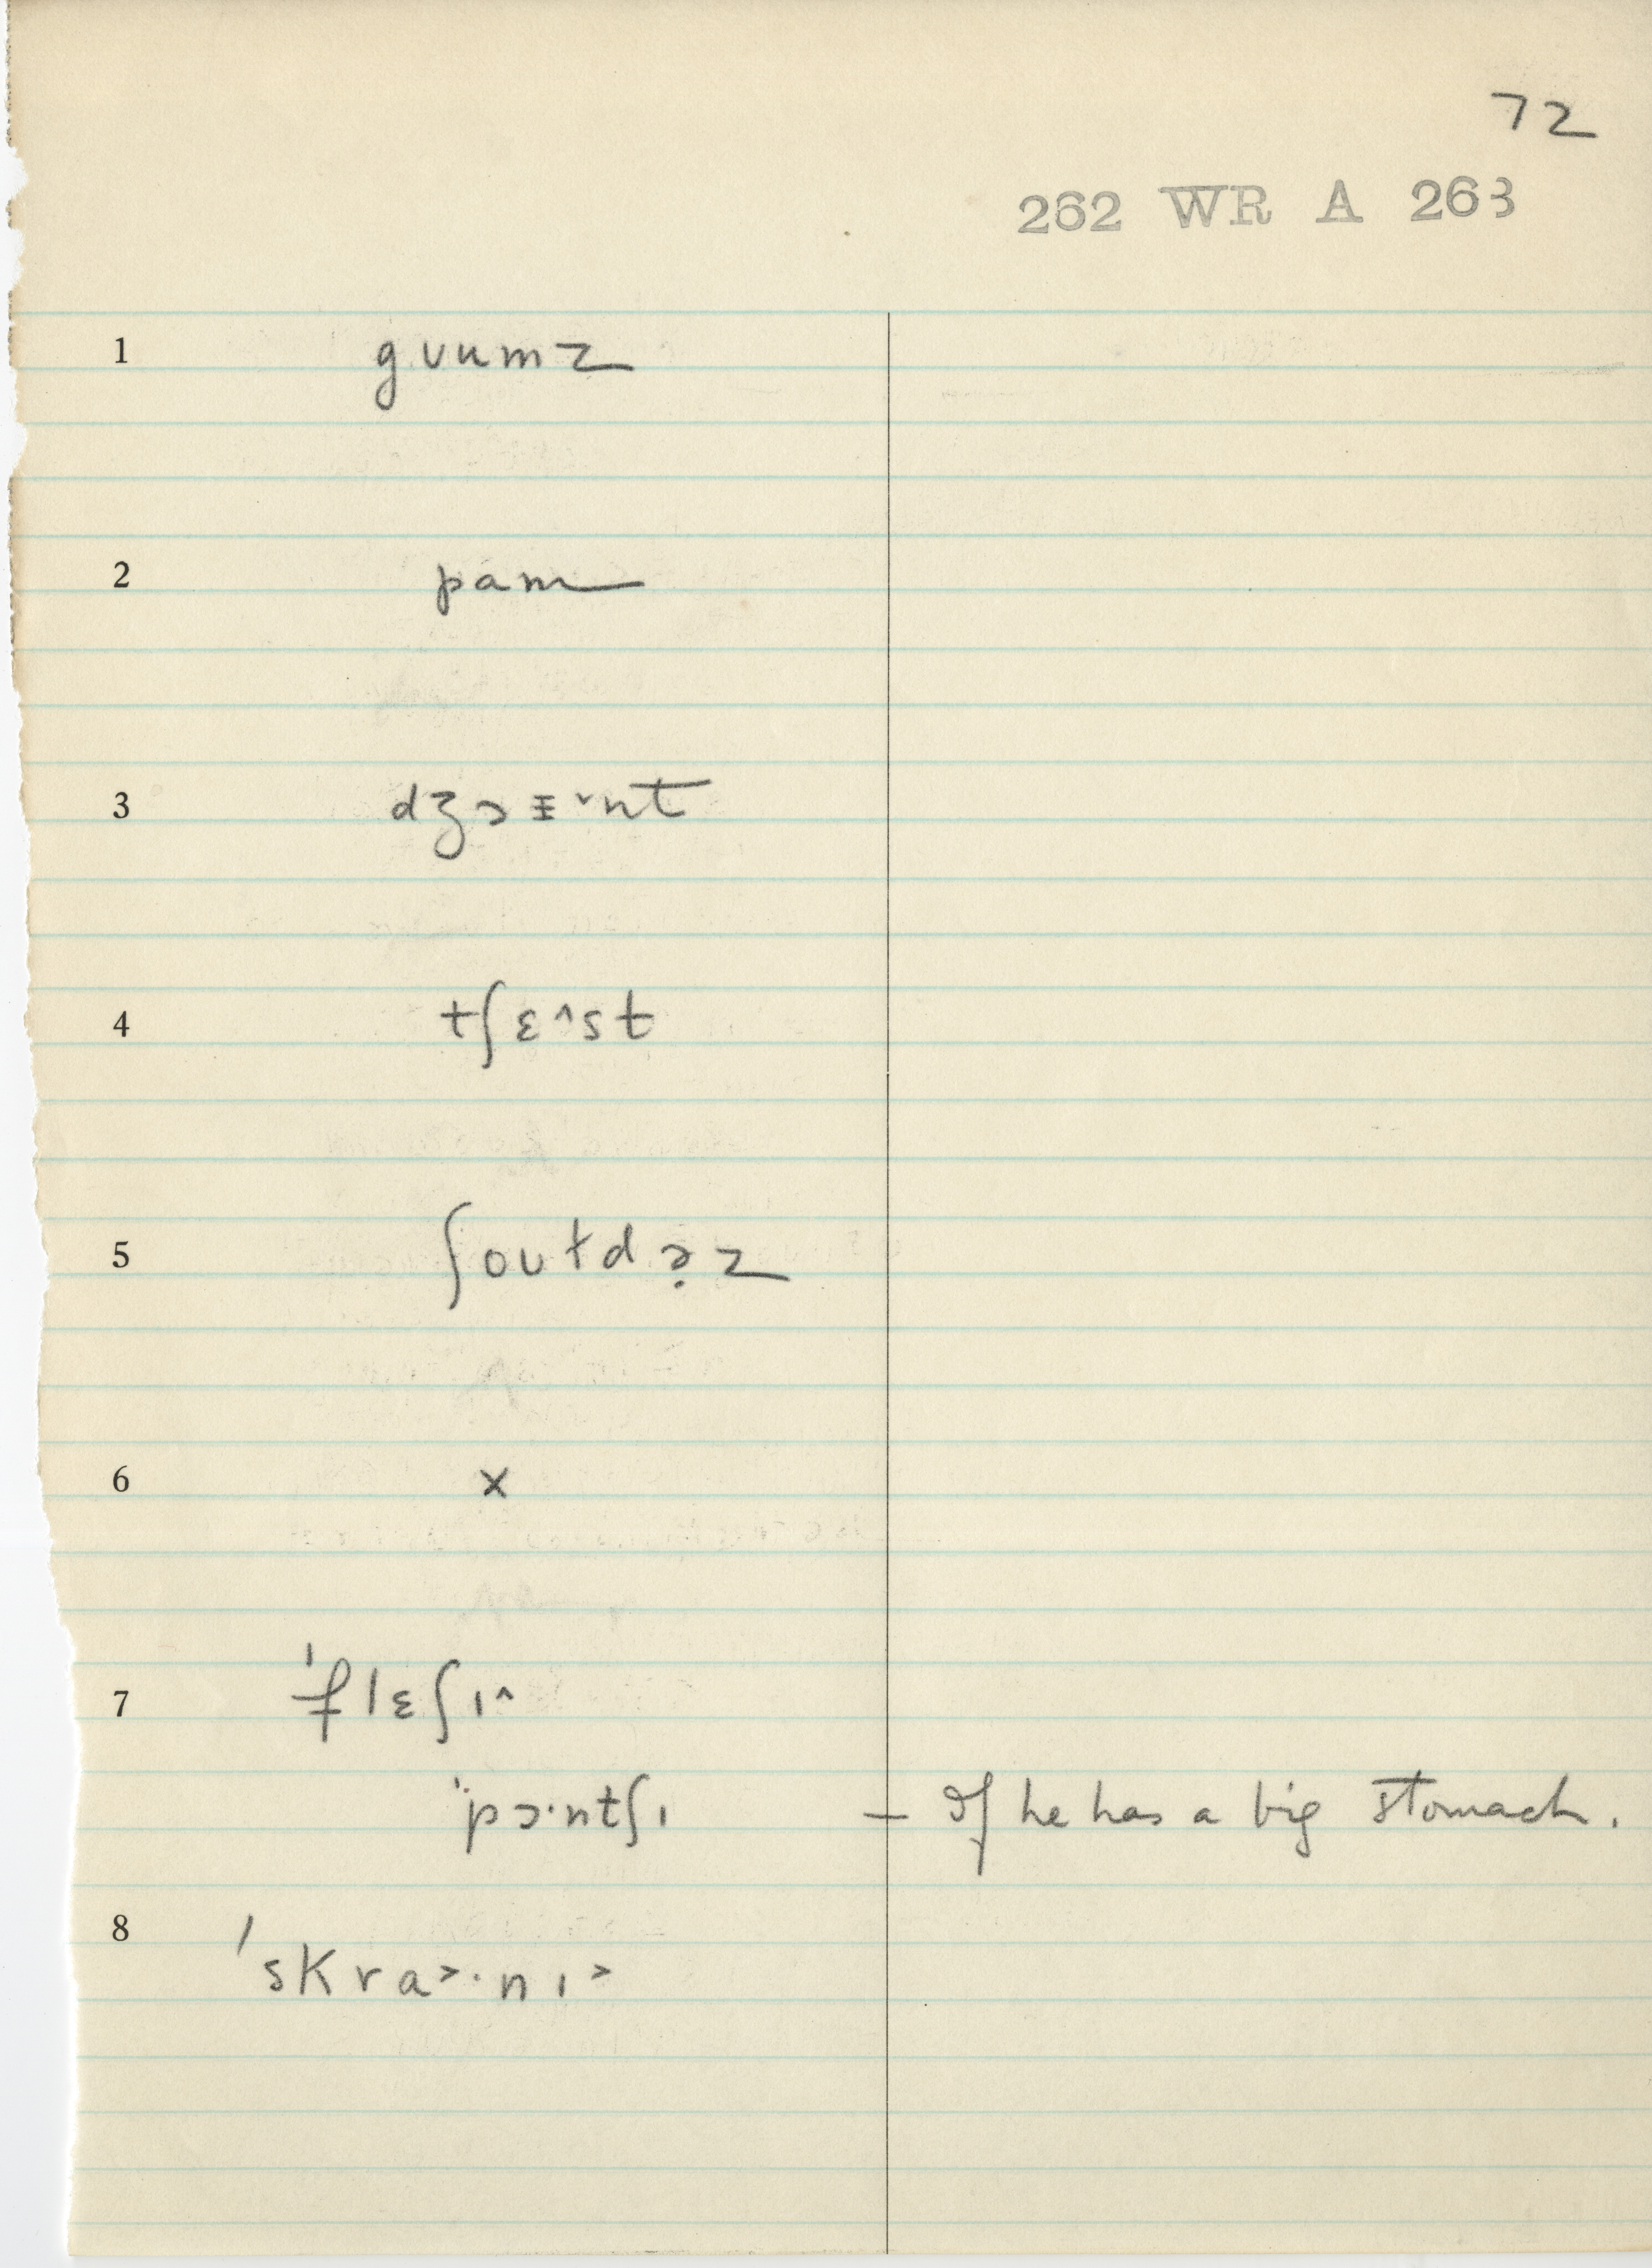 72
262 WR A 263
1 gvumz
2 pam
3 dʒɔɪ˅nt
4 tʃɛ˄st
5 ʃoutdə̣z
6 x
7 ˈflɛʃɪ˄
ˈpɔ·ntʃɪ — If he has a big stomach.
8 ˈskra˃·nɪ˃